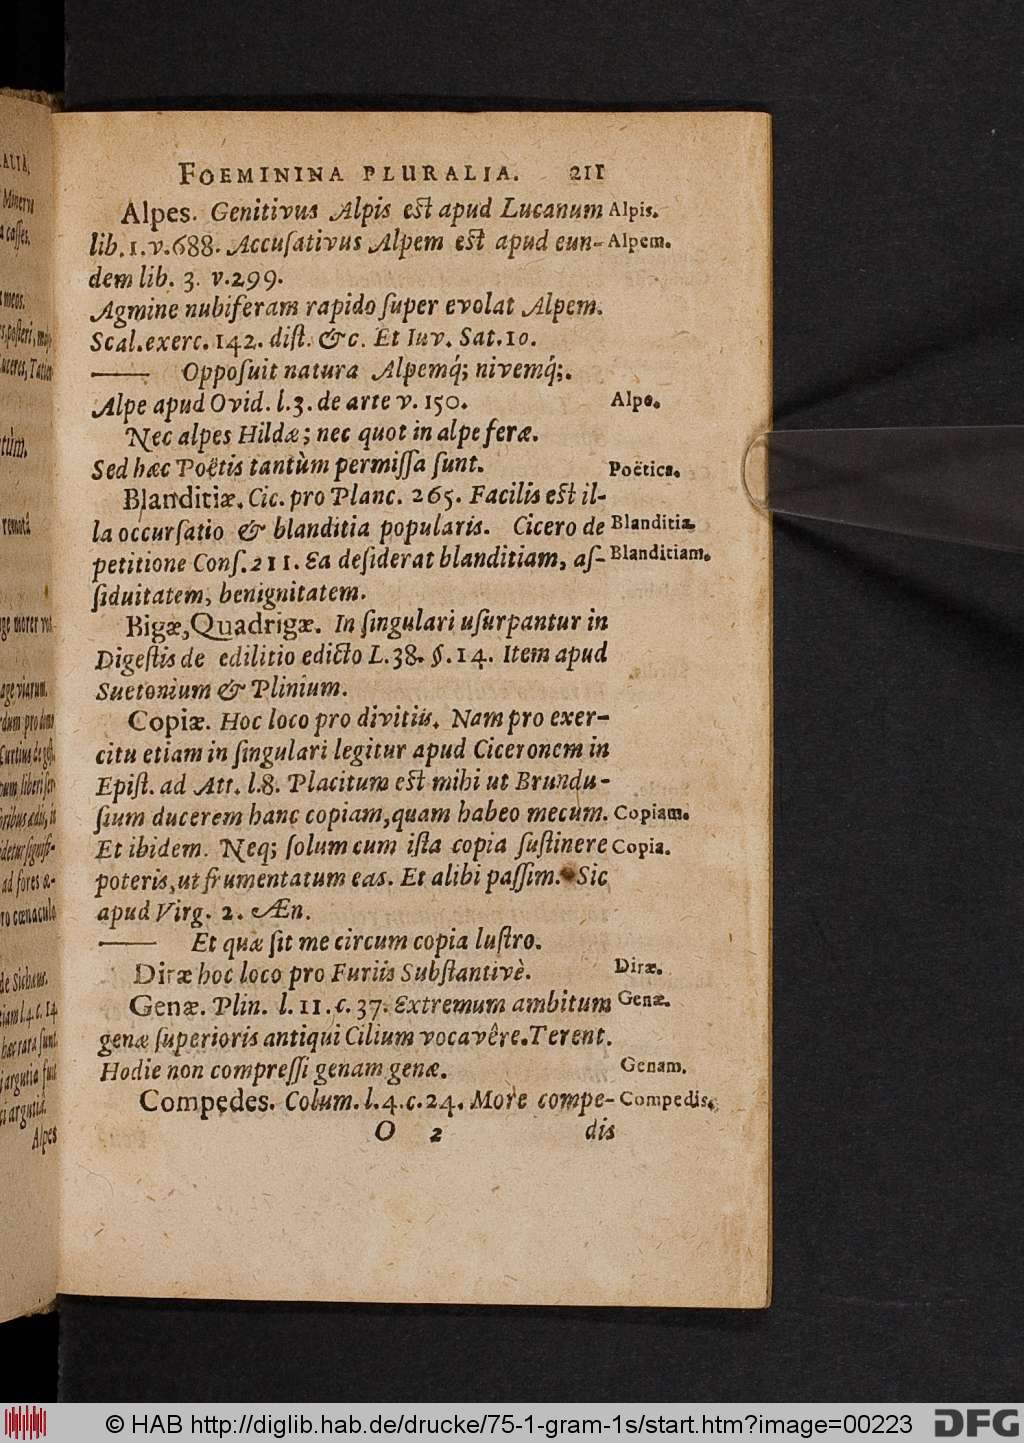 FOEMININA PLURALIA. 211
Alpes. Genitivus Alpis est apud Lucanum Alpis.
lib. 1. v. 688. Accuſativus Alpem est apud eun- Alpem.
dem lib. 3. v. 299.
Agmine nubiferam rapido ſuper evolat Alpem.
Scal. exerc. 142. diſt. &c. Et Iuv. Sat. 10.
—— Oppoſuit natura Alpemq́; nivemq́;.
Alpe apud Ovid. l. 3. de arte v. 150. Alpe.
Nec alpes Hildæ; nec quot in alpe feræ.
Sed hæc Poëtis tantùm permiſſa ſunt. Poëtica.
Blanditiæ. Cic. pro Planc. 265. Facilis est il-
la occurſatio & blanditia popularis. Cicero de Blanditia.
petitione Conſ. 211. Ea deſiderat blanditiam, aſ- Blanditiam.
ſiduitatem, benignitatem.
Bigæ, Quadrigæ. In ſingulari uſurpantur in
Digeſtis de edilitio edicto L. 38. §. 14. Item apud
Suetonium & Plinium.
Copiæ. Hoc loco pro divitiis. Nam pro exer-
citu etiam in ſingulari legitur apud Ciceronem in
Epiſt. ad Att. l. 8. Placitum est mihi ut Brundu-
ſium ducerem hanc copiam, quam habeo mecum. Copiam.
Et ibidem. Neq; ſolum cum iſta copia ſuſtinere Copia.
poteris, ut frumentatum eas. Et alibi paſſim. Sic
apud Virg. 2. Æn.
—— Et quæ ſit me circum copia luſtro.
Diræ hoc loco pro Furiis Subſtantivè. Diræ.
Genæ. Plin. l. 11. c. 37. Extremum ambitum Genæ.
genæ ſuperioris antiqui Cilium vocavêre. Terent.
Hodie non compreſſi genam genæ. Genam.
Compedes. Colum. l. 4. c. 24. More compe- Compedis.
O 2 dis
© HAB http://diglib.hab.de/drucke/75-1-gram-1s/start.htm?image=00223
DFG